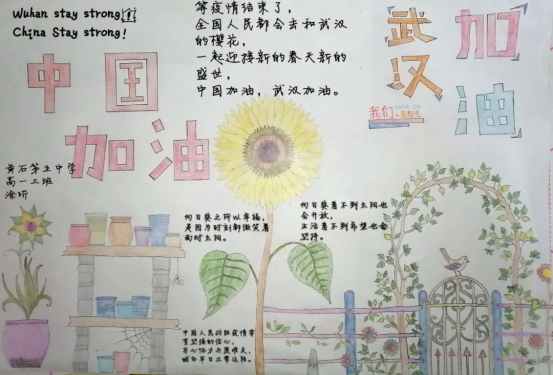 Wuhan stay strong
China Stay strong!
等疫情结束了,
全国人民都会去和武汉
的樱花,
一起迎接新的春天新的
盛世,
中国加油,武汉加油。
武汉
加油
我们
中国
加油
黄石第
中学
高一三班
向日葵之所以幸福,
是因为时刻都微笑着
面对太阳。
向日葵看不到太阳也
会开放,
生活看不到希望也会
坚持。
中国人民战胜疫情需
有坚强的信心,
齐心协力共渡难关,